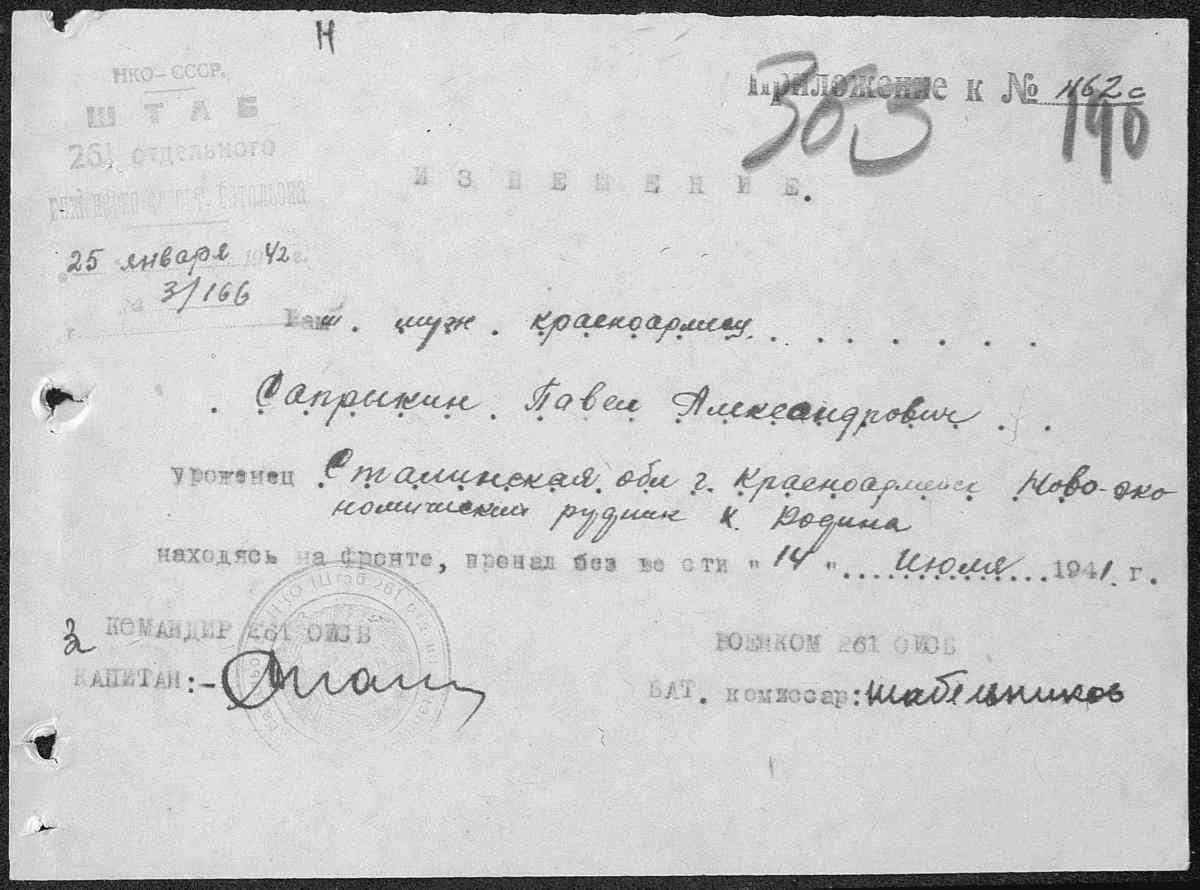 Н
НКО-СССР.
ШТАБ
261 отдельного
батальона
Приложение к № 1162с
303
190
ИЗВЕЩЕНИЕ.
25 января 1942 г.
№ 3/166
г.
Ваш. муж. красноармеец
Саприкин Павел Александрович
уроженец Сталинская обл г. Красноармейск Ново-эко
номический рудник к. Родина
находясь на фронте, пропал без вести "14" Июля 1941 г.
КОМАНДИР 261 ОИСБ
КАПИТАН:-
ВОЕНКОМ 261 ОИСБ
БАТ. комиссар: Шабельников
НКО Штаб 261